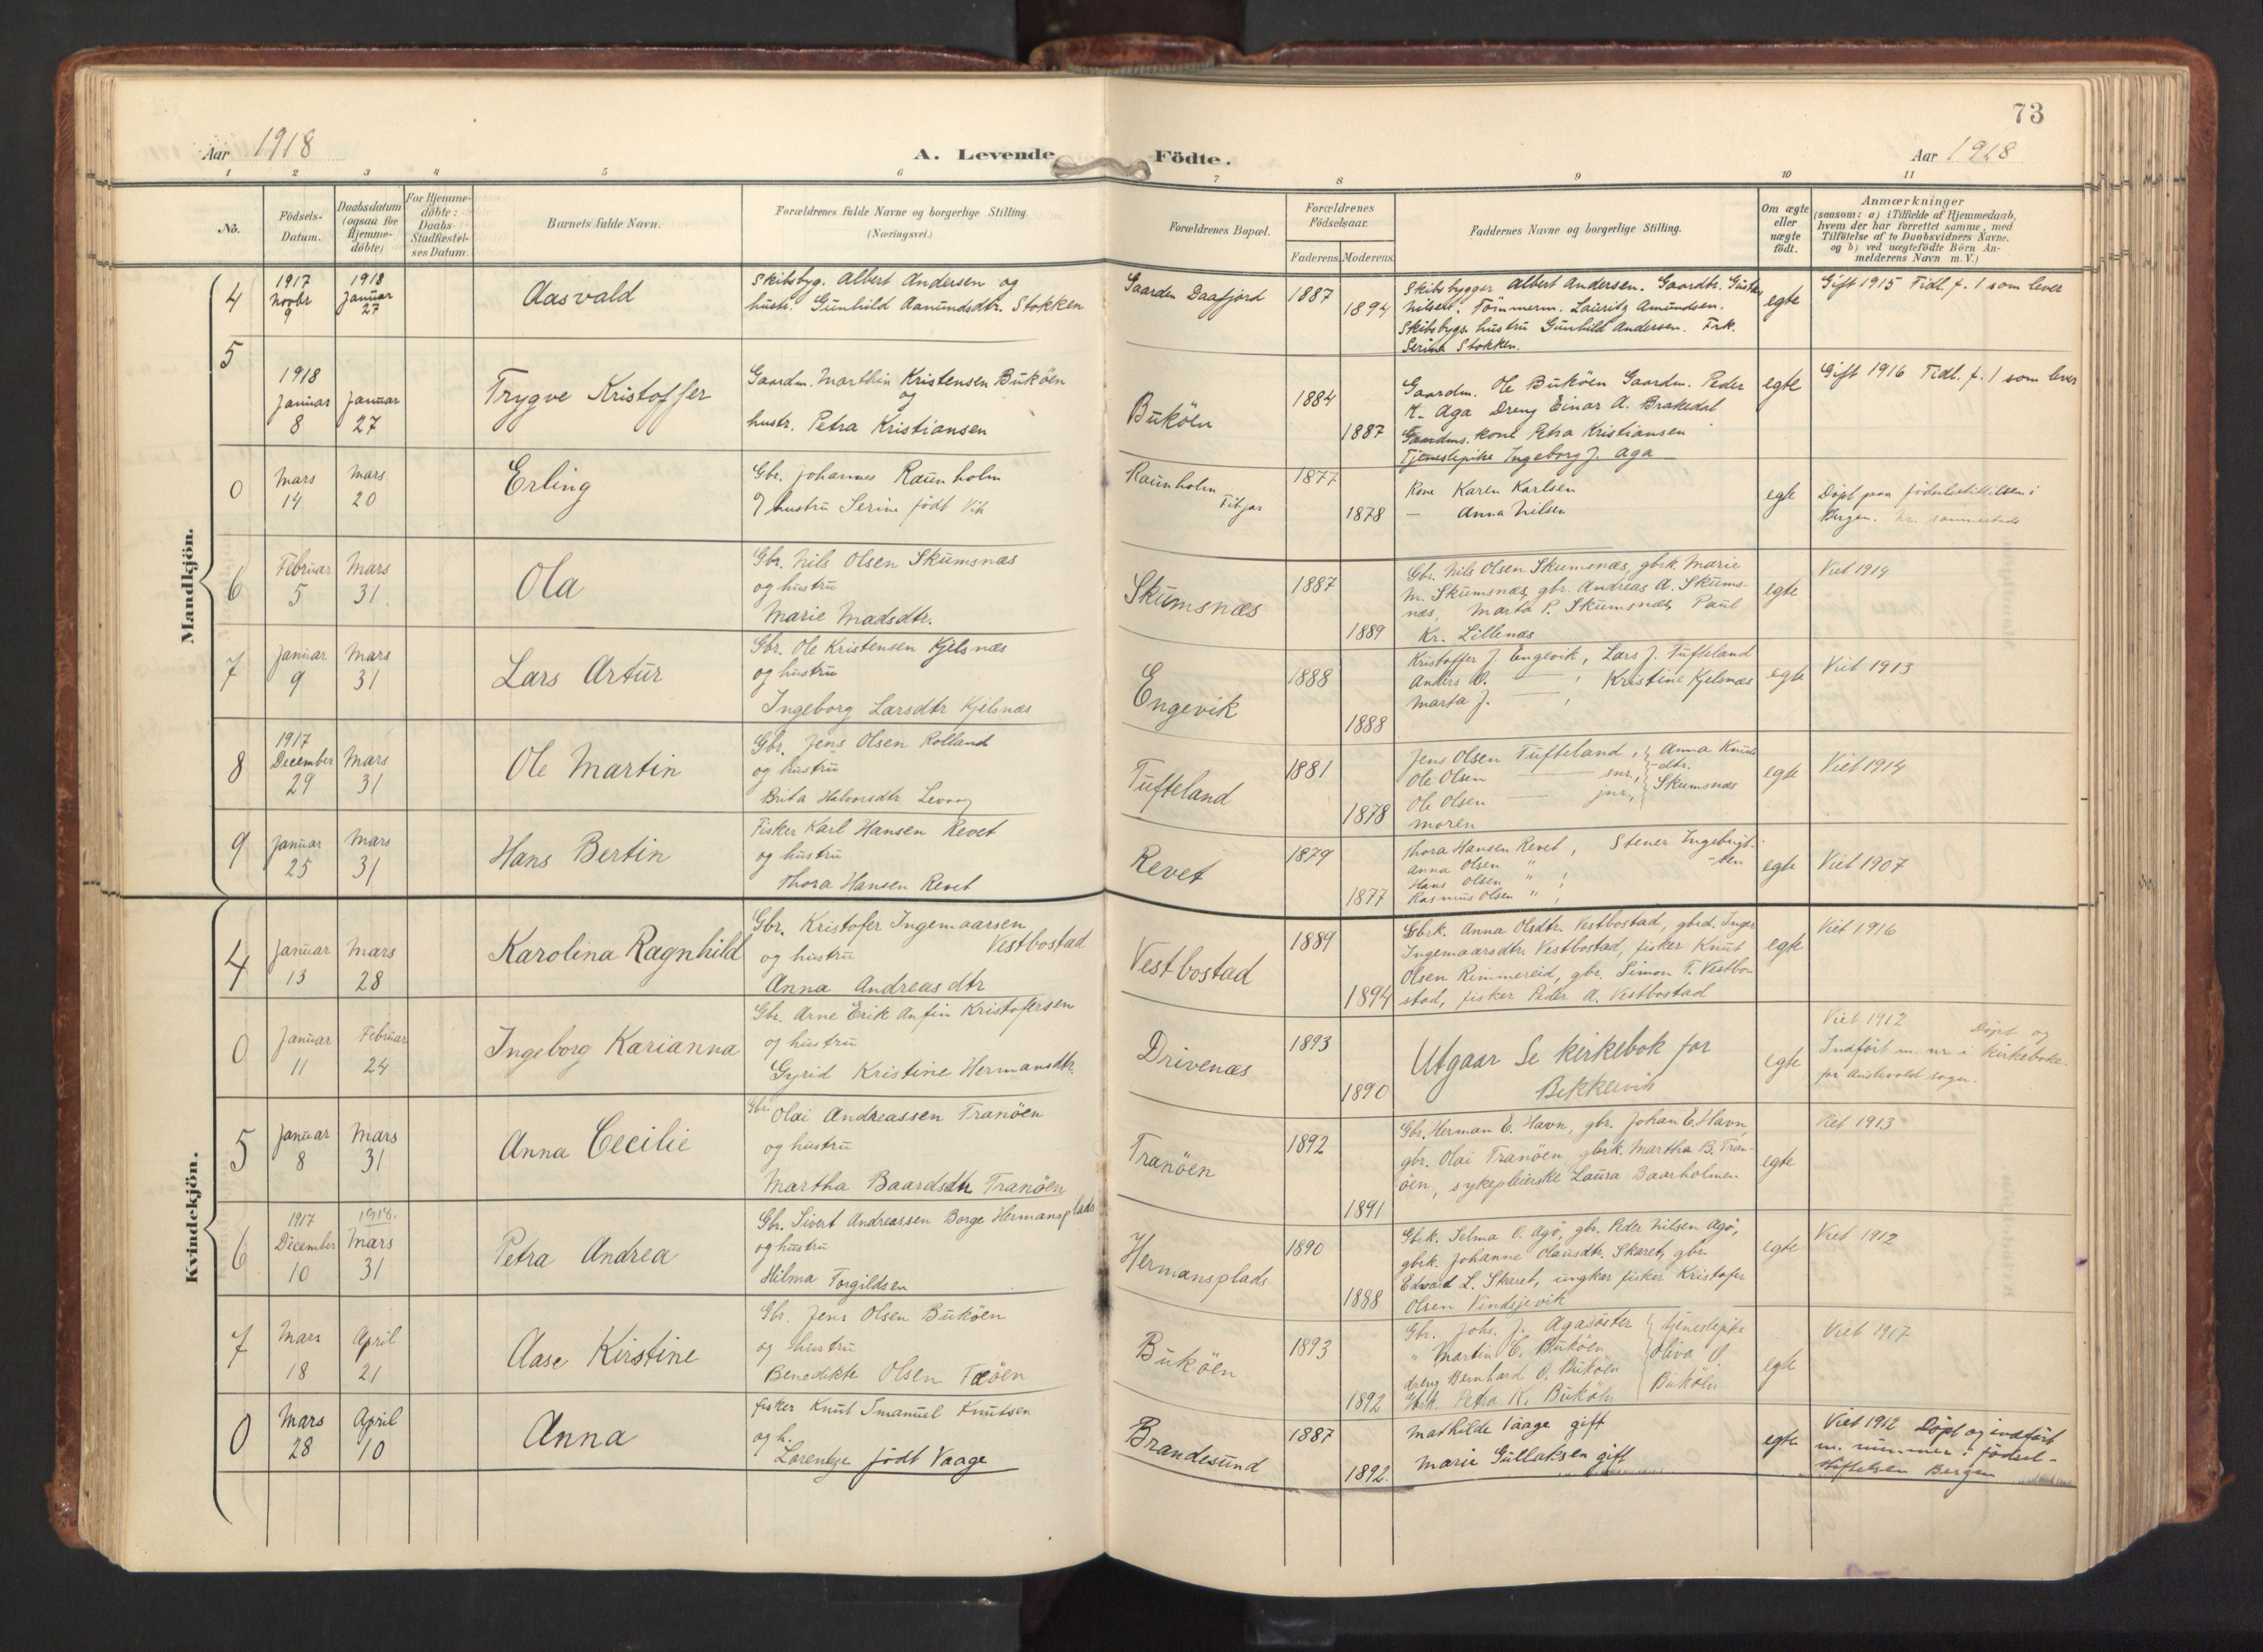 73
Aar 1918
A. Levende Födte.
Aar 1918
1 2 3 4 5 6 7 8 9 10 11
No.
Födsels-Datum.
Daabsdatum (ogsaa for Hjemme-döbte)
For Hjemme-döbte: Daabs-Stadfæstel-ses Datum.
Barnets fulde Navn.
Forældrenes fulde Navne og borgerlige Stilling.
(Næringsvei.)
Forældrenes Bopæl.
Forældrenes Födselsaar.
Faderens Moderens
Faddernes Navne og borgerlige Stilling.
Om ægte eller uægte födt.
Anmærkninger
(saasom: a) i Tilfælde af Hjemmedaab,
hvem der har forrettet samme, med
Tilföielse af to Daabsvidners Navne.
og b) ved uægtefödte Börn An-
melderens Navn m. V.)
Mandkjön.
4 1917 Novbr 9 1918 Januar 27 Aasvald
Skibsbyg. Albert Andersen og
hustr. Gunhild Aamundsdtr. Stokken
Gaarden Daafjord 1887 1894
Skibsbygger Albert Andersen. Gaardbr.
Nilsen. Tömmerm. Lauritz Amundsen.
Skibsbygs. hustru Gunhild Andersen. Frk.
Serina Stokken.
egte
Gift 1915 Tidl. f. 1 som lever
5 1918 Januar 8 Januar 27 Trygve Kristoffer
Gaardm. Marthin Kristensen Buköen
og
hustr. Petra Kristiansen
Buköen 1884 1887
Gaardm. Ole Buköen Gaardm. Peder
K. Aga Dreng Einar A. Brakedal
Gaardms. kone Petra Kristiansen
Tjenestepike Ingeborg J. Aga
egte
Gift 1916 Tidl. f. 1 som lever
0 Mars 14 Mars 20 Erling
Gbr. Johannes Raunholm
og hustru Serine födt Vik
Raunholm
Fitjar
1877 1878
Kone Karen Karlsen
— Anna Nilsen
egte
Döpt paa födselsstiftelsen i
Bergen.
6 Februar 5 Mars 31 Ola
Gbr. Nils Olsen Skumsnæs
og hustru
Marie Madsdtr.
Skumsnæs 1887 1889
Gbr. Nils Olsen Skumsnæs, gbrk. Marie
M. Skumsnæs, gbr. Andreas A. Skums-
næs, Marta P. Skumsnæs, Paul
Kr. Lillenæs
egte
Viet 1914
7 Januar 9 Mars 31 Lars Artur
Gbr. Ole Kristensen Kjelsnæs
og hustru
Ingeborg Larsdtr Kjelsnæs
Engevik 1888 1888
Kristoffer J. Engevik, Lars J. Tufteland
Anders O. — , Kristine Kjelsnæs
Marta J. — ,
egte
Viet 1913
8 1917 December 29 Mars 31 Ole Martin
Gbr. Jens Olsen Rolland
og hustru
Brita Halvorsdtr
Tufteland 1881 1878
Jens Olsen Tufteland, Anna Knuds
Ole Olsen — snr., -dtr.
Ole Olsen — jnr., Skumsnæs
moren
egte
Viet 1914
9 Januar 25 Mars 31 Hans Bertin
Fisker Karl Hansen Revet
og hustru
Thora Hansen Revet
Revet 1879 1877
Thora Hansen Revet, Stener Ingebrigt-
Anna Olsen " -sen
Hans Olsen " ,
Rasmus Olsen " ,
egte
Viet 1907
Kvindekjön.
4 Januar 13 Mars 28 Karolina Ragnhild
Gbr. Kristofer Ingemaarsen
og hustru Vestbostad
Anna Andreasdtr
Vestbostad 1889 1894
Gbrk. Anna Olsdtr. Vestbostad, gbrd. Inger
Ingemaarsdtr. Vestbostad, fisker Knut
Olsen Rimmereid, gbr. Simon T. Vestbo-
stad, fisker Peder A. Vestbostad
egte
Viet 1916
0 Januar 11 Februar 24 Ingeborg Karianna
Gbr. Arne Erik Anfin Kristofersen
og hustru
Gyrid Kristine Hermansdtr.
Drivenæs 1893 1890
Utgaar Se kirkebok for
Bekkervik
egte
Viet 1912 Döpt og
Indfört m. nr i kirkeboken
for Austevold sogn.
5 Januar 8 Mars 31 Anna Cecilie
Gbr. Olai Andreassen Tranöen
og hustru
Martha Baardsdtr Tranöen
Tranöen 1892 1891
Gbr. Herman E. Havn, gbr. Johan E. Havn,
gbr. Olai Tranöen, gbrk. Martha B. Tran-
öen, sykepleierske Laura Baarholmen
egte
Viet 1913
6 1917 December 10 1918. Mars 31 Petra Andrea
Gbr. Sivert Andreassen Borge Hermansplads
og hustru
Hilma Torgildsen
Hermansplads 1890 1888
Gbrk. Selma O. Agö, gbr. Peder Nilsen Agö,
gbrk. Johanne Olausdtr. Skaret, gbr.
Edvard L. Skaret, ungkar fisker Kristofer
Olsen Vindsjevik
egte
Viet 1912
7 Mars 18 April 21 Aase Kirstine
Gbr. Jens Olsen Buköen
og hustru
Benedikte Olsen Tæöen
Buköen 1893 1892
Gbr. Johs. J. Agasöster tjenestepike
" Martin C. Buköen Oliva O.
dreng Bernhard O. Buköen Buköen
Gbrk. Petra K. Buköen
egte
Viet 1917
0 Mars 28 April 10 Anna
Fisker Knut Imanuel Knutsen
og h.
Lorentze födt Vaage
Brandesund 1887 1892.
Mathilde Vaage gift
Marie Gullaksen gift
egte
Viet 1912 Döpt og indfört
m. nummer i födsel-
stiftelsen Bergen